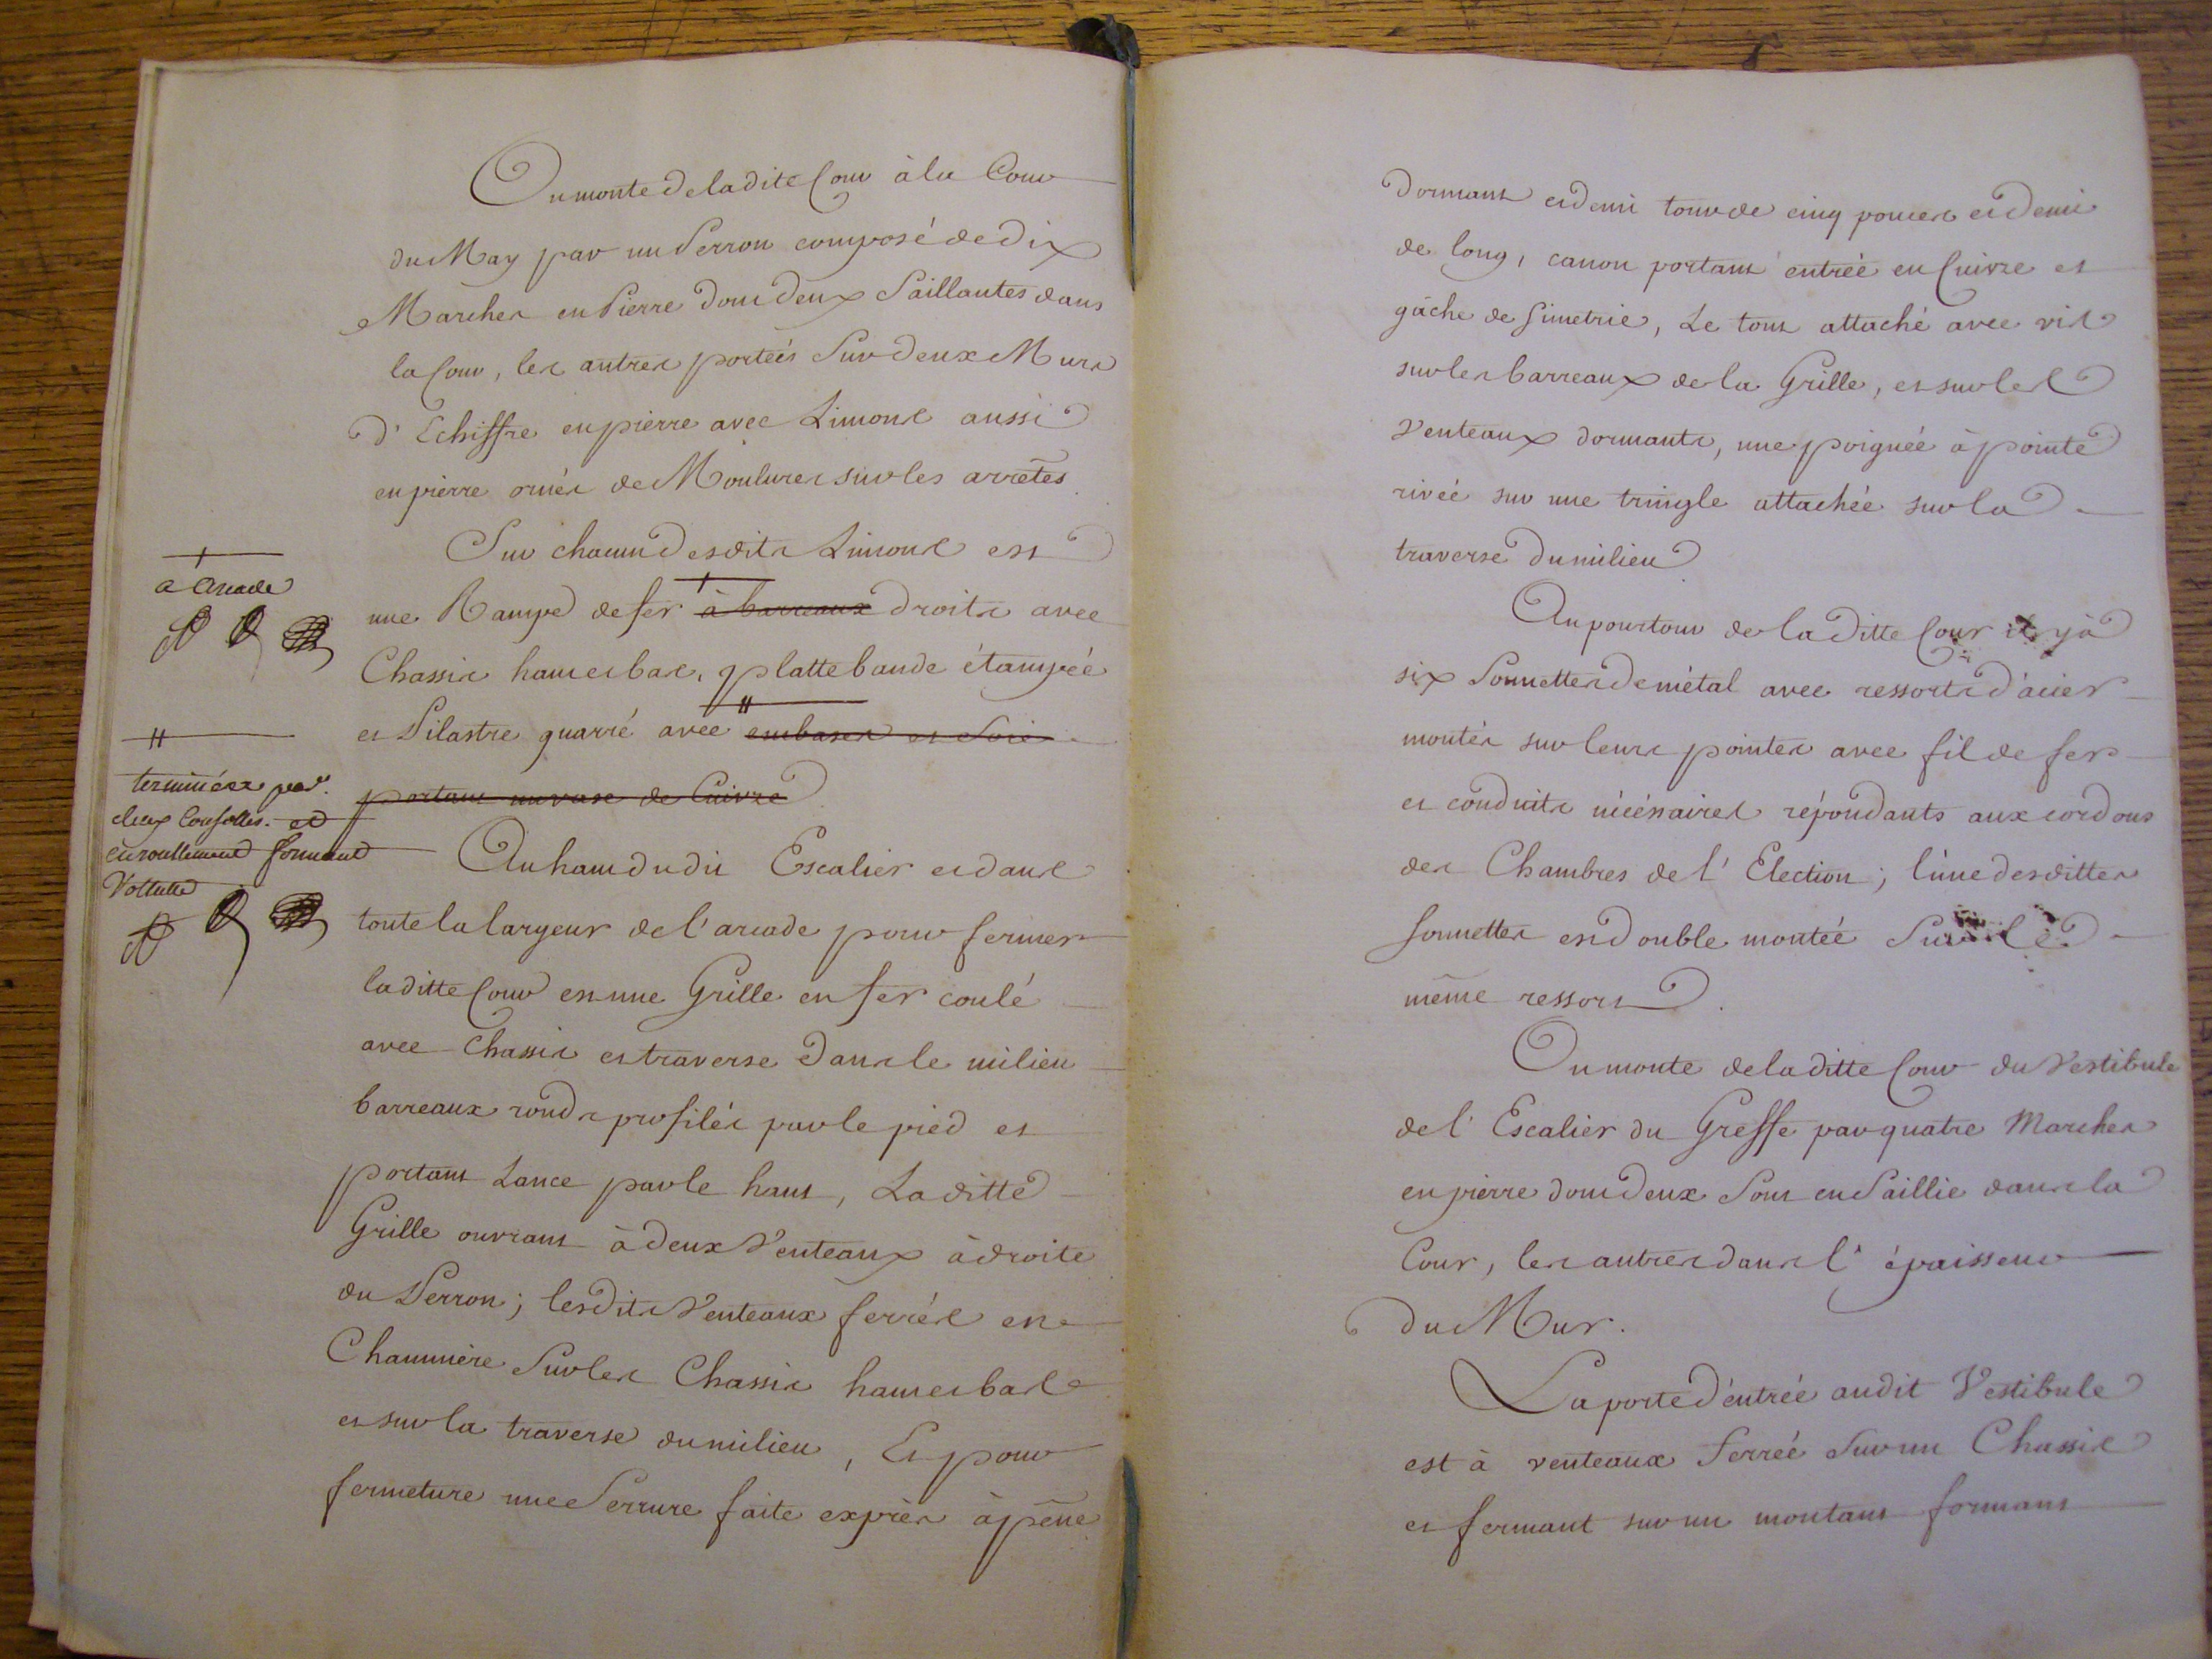 On monte de la dite Cour à la Cour
du May par un Perron composé de dix
Marches en Pierre dont deux Saillantes dans
la Cour, les autres portées Sur deux Murs
d'Echiffre en pierre avec Limons aussi
en pierre ornés de Moulures sur les arrêtes
Sur chacun desdits Limons est
une Rampe de fer à barreaux droits avec
Chassis haut et bas, platte bande étampée
et Pilastre quarré avec embases et Socle
portant un vase de Cuivre
Au haut dudit Escalier et dans
toute la largeur de l'arcade pour fermer
la ditte Cour est une Grille en fer coulé
avec Chassis et traverse dans le milieu
barreaux ronds profilés par le pied et
portant Lance par le haut, La ditte
Grille ouvrant à deux Venteaux à droite
du Perron; lesdits Venteaux ferrés en
Charniere Sur les Chassis haut et bas
et sur la traverse du milieu, Et pour
fermeture une Serrure faite exprès à pêne
à Arcade
terminées par
deux Consolles et
enroullement formant
Vollutte
dormant et demi tour de cinq pouces et demi
de long, canon portant entrée en Cuivre et
gâche de Simetrie, Le tout attaché avec vis
sur les barreaux de la Grille, et sur les
Venteaux dormants, une poignée à pointe
rivée sur une tringle attachée sur la
traverse du milieu
Au pourtour de la ditte Cour il y à
six Sonnettes de métal avec ressorts d'acier
montés sur leurs pointes avec fil de fer
et conduits nécéssaires répondants aux cordons
des Chambres de l'Election; l'une des dittes
sonnettes est double montée Sur le
même ressort.
On monte de la ditte Cour au Vestibule
de l'Escalier du Greffe par quatre Marches
en pierre dont deux Sont en Saillie dans la
Cour, les autres dans l'épaisseur
du Mur.
La porte d'éntrée audit Vestibule
est à venteaux ferrée Sur un Chassis
et fermant sur un montant formant